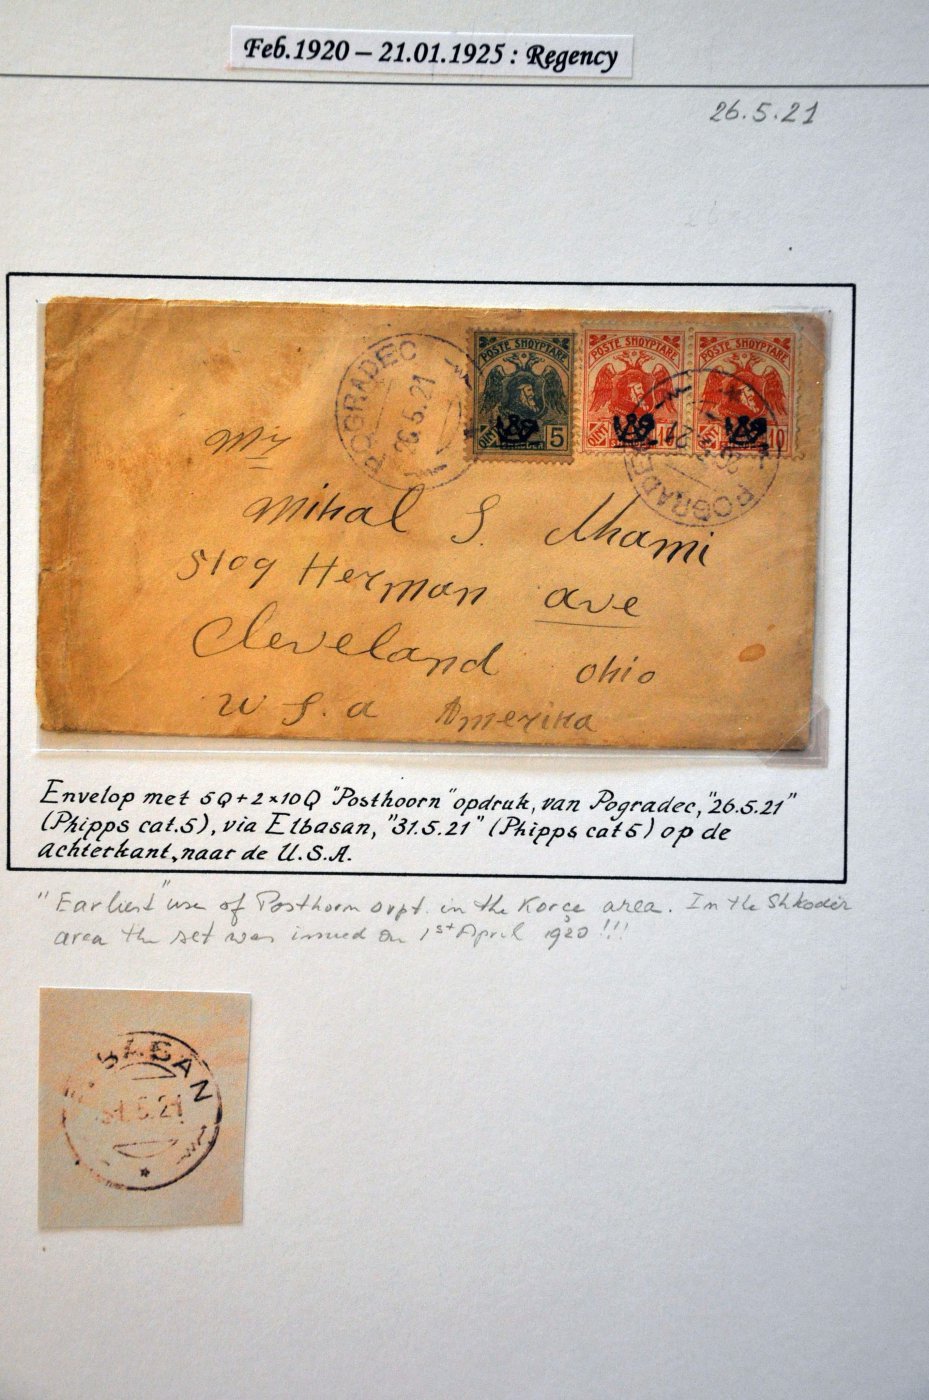 Feb.1920 – 21.01.1925 : Regency
26.5.21
POGRADEC
26.5.21
POSTE SHQYPTARE
QINT 5
POSTE SHQYPTARE
QINT 10
POSTE SHQYPTARE
QINT 10
POGRADEC
Mr
Mihal S.
5109 Herman ave
Cleveland ohio
U S. a Amerika
Envelop met 5Q+2×10Q "Posthoorn" opdruk, van Pogradec, "26.5.21"
(Phipps cat.5), via Elbasan, "31.5.21" (Phipps cat 5) op de
achterkant, naar de U.S.A.
"Earliest" use of Posthorn ovpt. in the Korçe area. In the Shkodër
area the set was issued on 1st April 1920!!!
BASAN
31.5.21